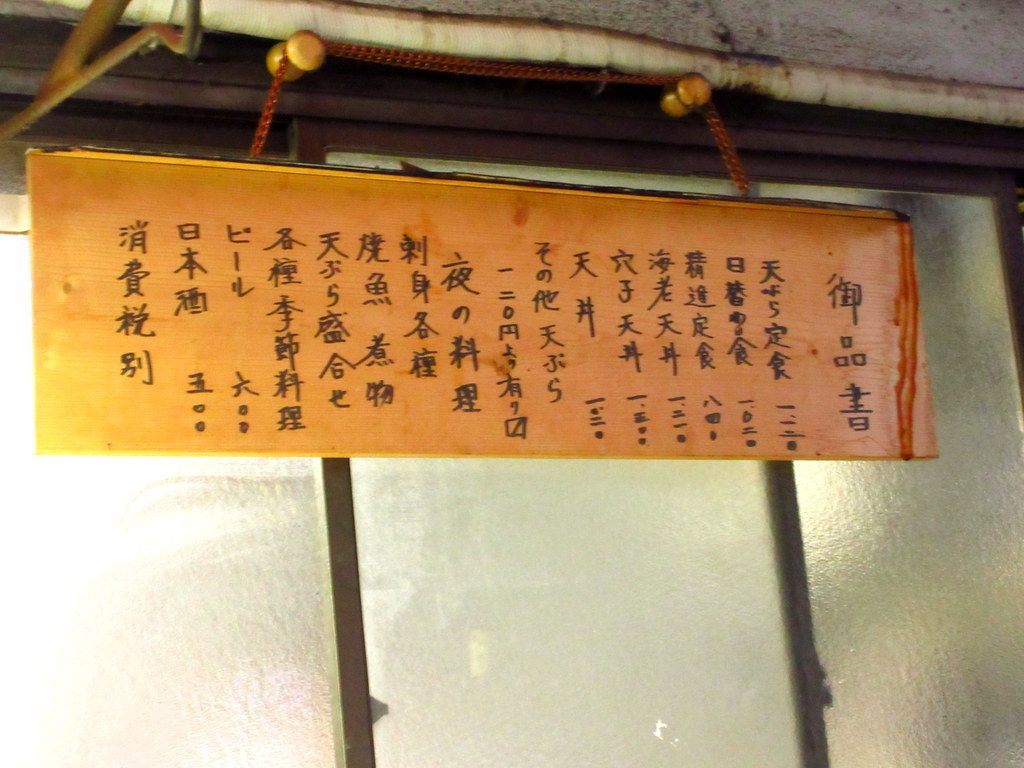 御品書
天ぷら定食 一、一二〇
一、〇二〇
精進定食 八四〇
海老天丼 一、二一〇
穴子天丼 一、三〇〇
天丼 一、〇二〇
その他天ぷら
一二〇円より有り〼
夜の料理
刺身各種
焼魚 煮物
天ぷら盛合せ
各種季節料理
ビール 六〇〇
日本酒 五〇〇
消費税別